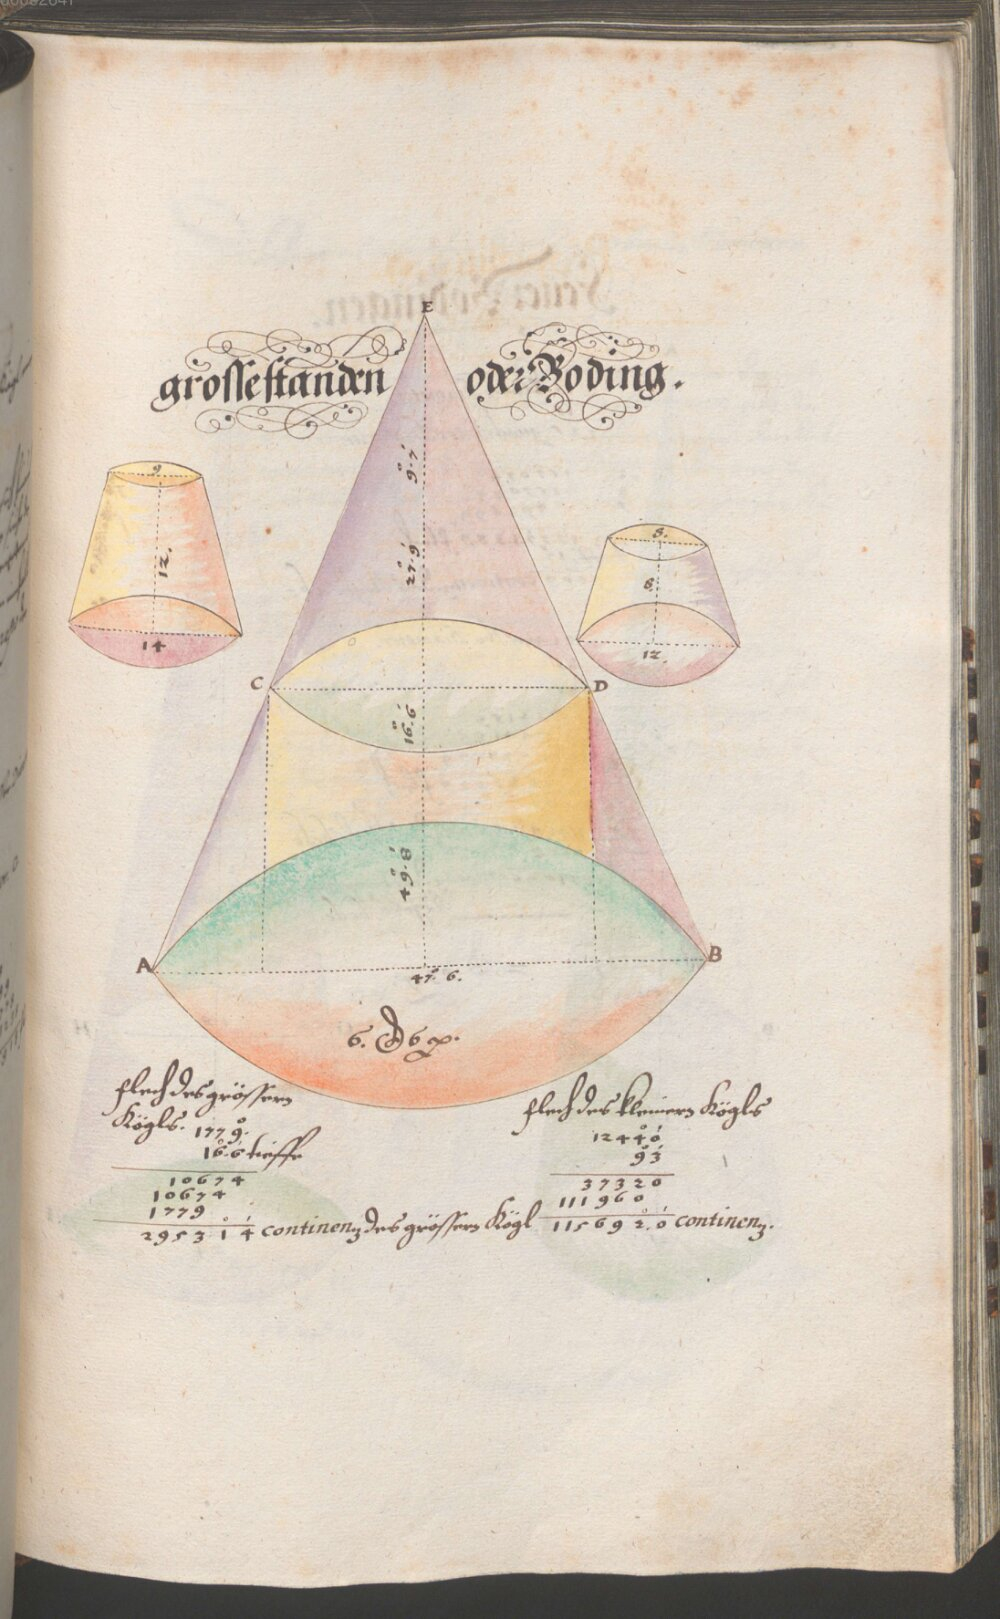 E
grosse standen oder Boding.
9.7
27.9
9
12.
14
8.
8.
12.
C
D
16.6
49.8
A
B
47.6.
Flech des grössern
Kögls. 1779.
16.6 tieffe
10674
10674
1779
295314 continenz des grössern Kögl
Flech des kleinern Kögls
12440
93
37320
111960
1156920 continenz.